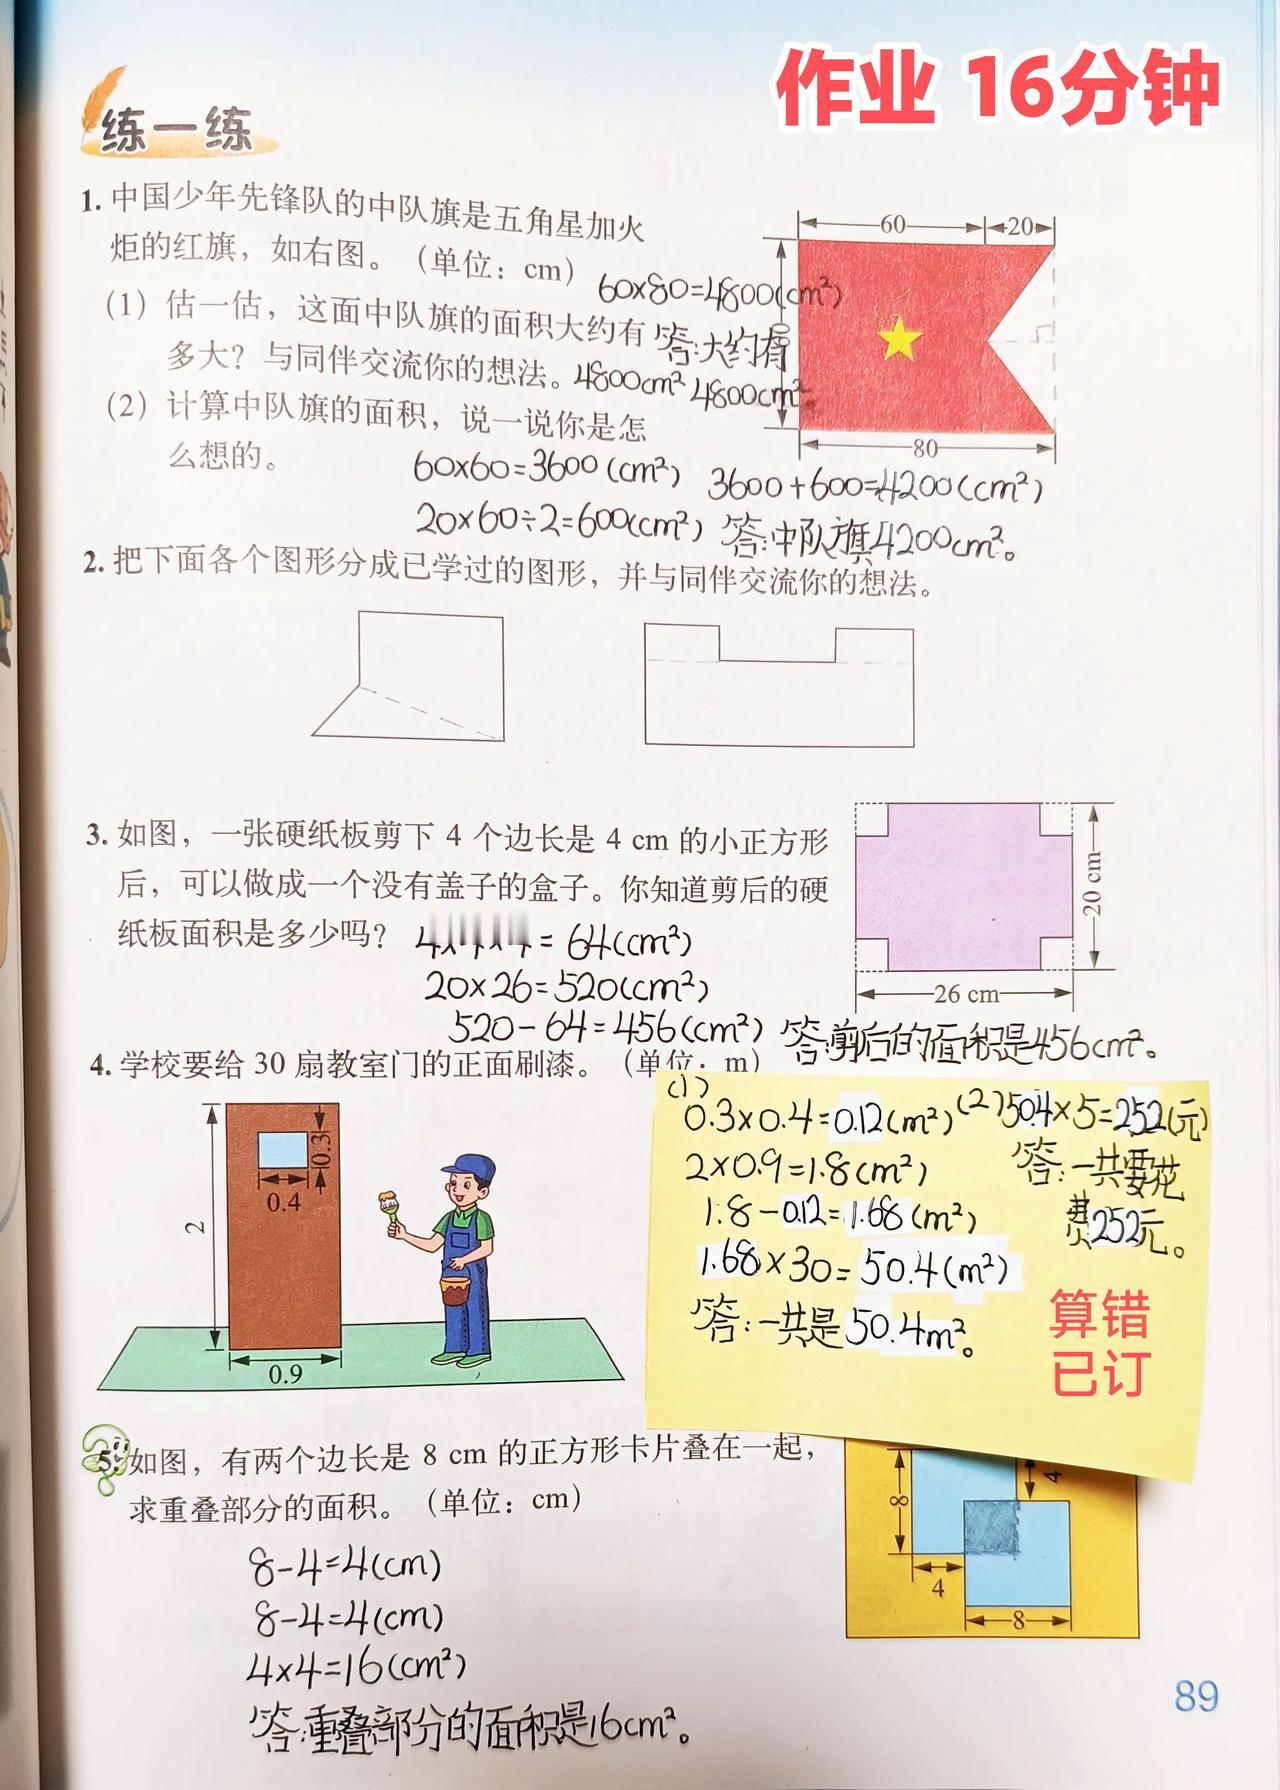 作业 16分钟
练一练
1. 中国少年先锋队的中队旗是五角星加火
炬的红旗，如右图。（单位：cm）
60×80=4800(cm²)
(1) 估一估，这面中队旗的面积大约有
多大？与同伴交流你的想法。
答：大约有
4800cm²
4800cm²
(2) 计算中队旗的面积，说一说你是怎
么想的。
60×60=3600(cm²)
20×60÷2=600(cm²)
3600+600=4200(cm²)
答：中队旗4200cm²。
60
20
80
2. 把下面各个图形分成已学过的图形，并与同伴交流你的想法。
3. 如图，一张硬纸板剪下 4 个边长是 4 cm 的小正方形
后，可以做成一个没有盖子的盒子。你知道剪后的硬
纸板面积是多少吗？
4×4×4= 64(cm²)
20×26=520(cm²)
520-64=456(cm²)
答：剪后的面积是456cm²。
20 cm
26 cm
4. 学校要给 30 扇教室门的正面刷漆。（单位：m）
0.3
0.4
2
0.9
(1)
0.3×0.4=0.12(m²)
2×0.9=1.8(m²)
1.8-0.12=1.68(m²)
1.68×30=50.4(m²)
答：一共是50.4m²。
(2)50.4×5=252(元)
答：一共要花
费252元。
算错
已订
5. 如图，有两个边长是 8 cm 的正方形卡片叠在一起，
求重叠部分的面积。（单位：cm）
8-4=4(cm)
8-4=4(cm)
4×4=16(cm²)
答：重叠部分的面积是16cm²。
8
4
4
8
89